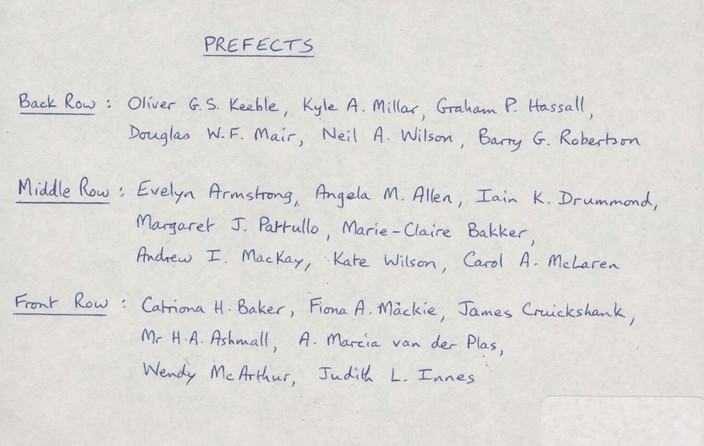 PREFECTS
Back Row : Oliver G.S. Keeble, Kyle A. Millar, Graham P. Hassall,
Douglas W.F. Mair, Neil A. Wilson, Barry G. Robertson
Middle Row : Evelyn Armstrong, Angela M. Allen, Iain K. Drummond,
Margaret J. Pattullo, Marie-Claire Bakker,
Andrew I. MacKay, Kate Wilson, Carol A. McLaren
Front Row : Catriona H. Baker, Fiona A. Mackie, James Cruickshank,
Mr H.A. Ashmall, A. Marcia van der Plas,
Wendy McArthur, Judith L. Innes